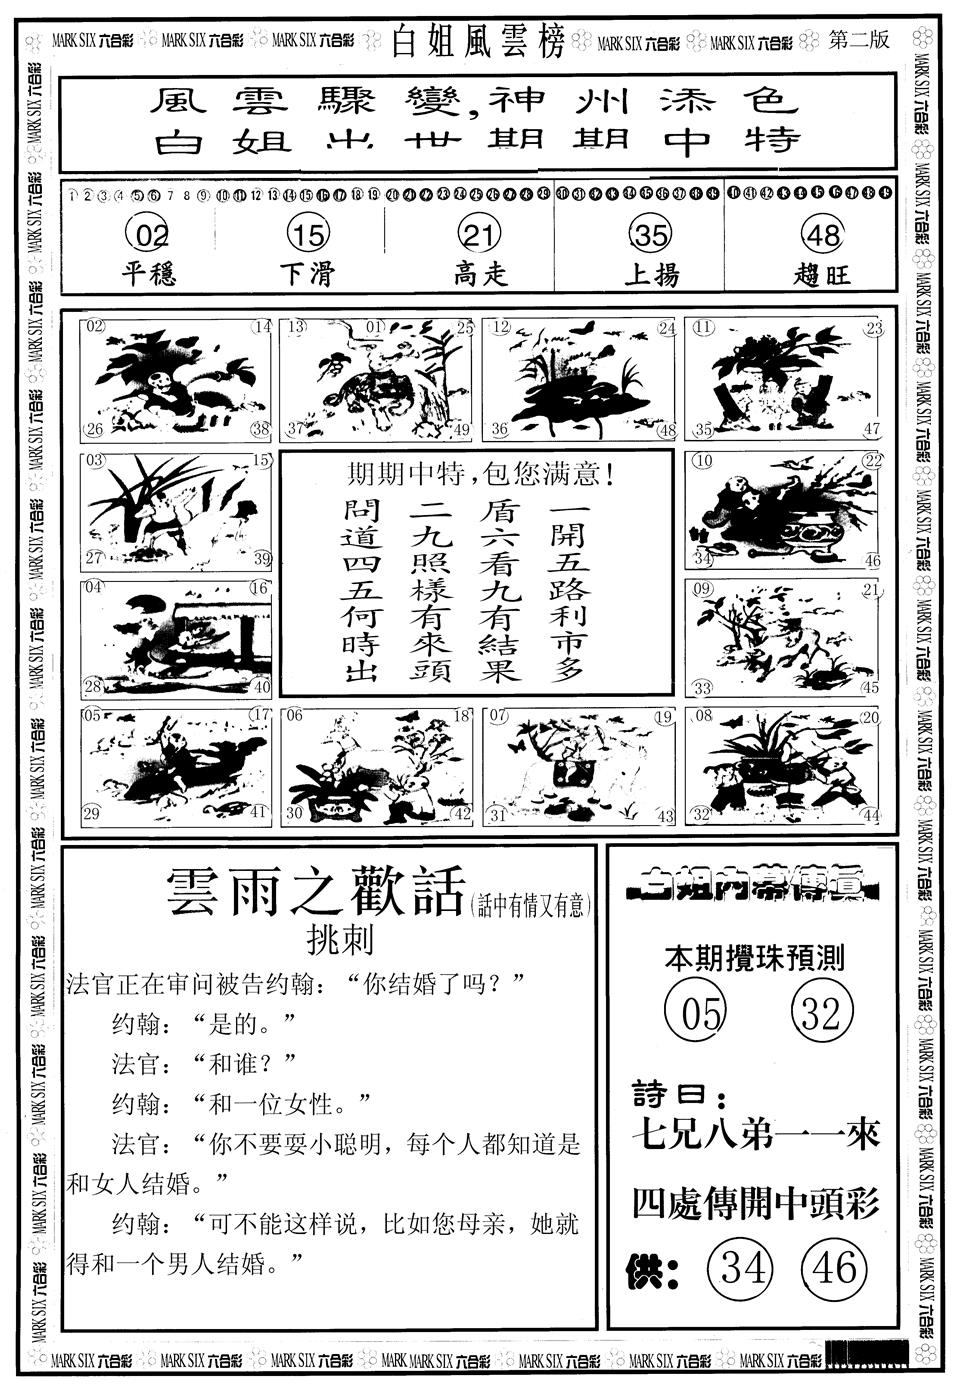 MARK SIX 六合彩 MARK SIX 六合彩 MARK SIX 六合彩 白姐風雲榜 MARK SIX 六合彩 MARK SIX 六合彩 第二版
風雲驟變,神州添色
白姐出世期期中特
1 2 3 4 5 6 7 8 9 10 11 12 13 14 15 16 17 18 19 20 21 22 23 24 25 26 27 28 29 30 31 32 33 34 35 36 37 38 39 40 41 42 43 44 45 46 47 48 49
02 15 21 35 48
平穩 下滑 高走 上揚 趨旺
02 14 13 01 25 12 24 11 23
26 38 37 49 36 48 35 47
03 15
27 39
04 16
28 40
期期中特,包您满意!
一開五路利市多
盾六看九有結果
二九照樣有來頭
問道四五何時出
10 22
34 46
09 21
33 45
05 17 06 18 07 19 08 20
29 41 30 42 31 43 32 44
雲雨之歡話(話中有情又有意)
挑刺
法官正在审问被告约翰:“你结婚了吗?”
约翰:“是的。”
法官:“和谁?”
约翰:“和一位女性。”
法官:“你不要耍小聪明,每个人都知道是
和女人结婚。”
约翰:“可不能这样说,比如您母亲,她就
得和一个男人结婚。”
白姐内幕傳真
本期攪珠預測
05 32
詩曰:
七兄八弟一一來
四處傳開中頭彩
供: 34 46
MARK SIX 六合彩 MARK SIX 六合彩 MARK SIX 六合彩 MARK MARK SIX 六合彩 MARK SIX 六合彩 MARK SIX 六合彩 MARK SIX 六合彩